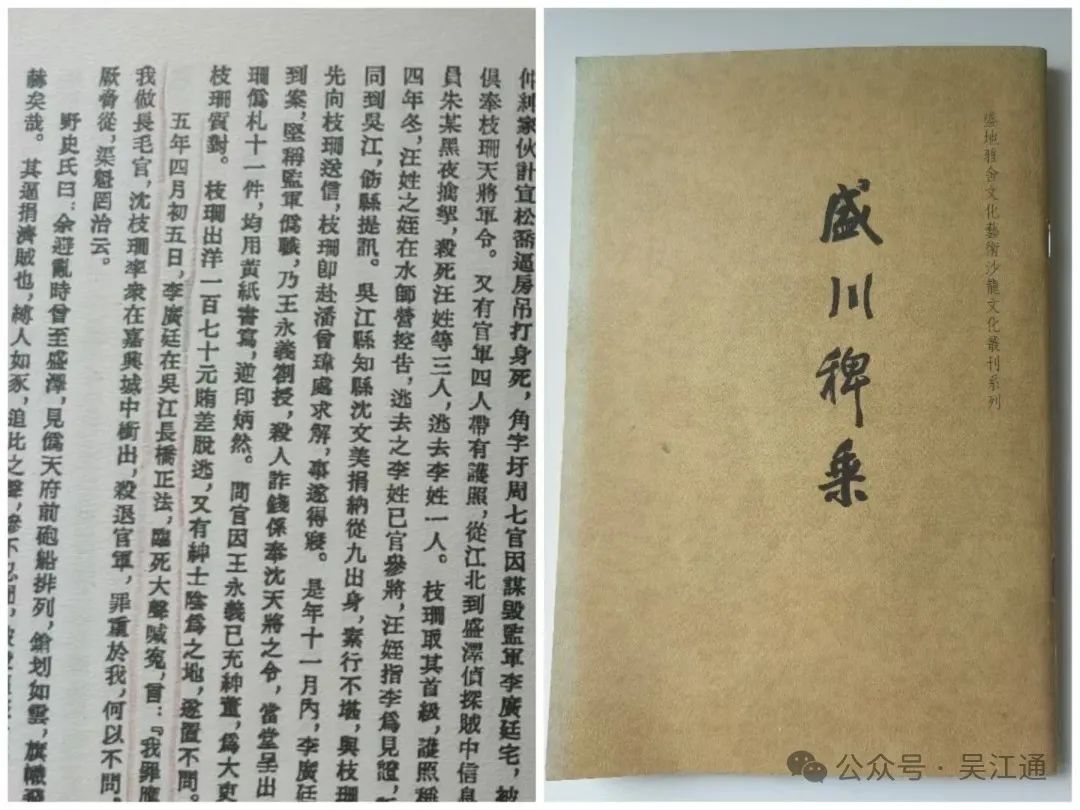 仲紳家伙計宜松喬逼房吊打身死，角字圩周七官因謀毀監軍李廣廷宅，被
俱奉枝珊天將軍令。又有官軍四人帶有護照，從江北到盛澤偵探賊中信息
員朱某黑夜擒拏，殺死汪姓等三人，逃去李姓一人。枝珊取其首級，護照稱
四年冬，汪姓之姪在水師營控告，逃去之李姓已官參將，汪姪指李爲見證，
同到吳江，飭縣提訊。吳江縣知縣沈文美捐納從九出身，素行不堪，與枝珊
先向枝珊送信，枝珊卽赴潘曾瑋處求解，事遂得寢。是年十一月內，李廣廷
到案，堅稱監軍僞職，乃王永義劄授，殺人詐錢係奉沈天將之令，當堂呈出
珊僞札十一件，均用黃紙書寫，逆印炳然。問官因王永義已充紳董，爲大吏
枝珊質對。枝珊出洋一百七十元賄差脫逃，又有紳士陰爲之地，遂置不問。
五年四月初五日，李廣廷在吳江長橋正法，臨死大聲喊冤，言：『我罪應
我做長毛官，沈枝珊率衆在嘉興城中衝出，殺退官軍，罪重於我，何以不問，
厥脅從，渠魁罔治云。
野史氏曰：余避亂時曾至盛澤，見僞天府前砲船排列，鎗划如雲，旗幟發
赫矣哉。其逼捐濟賊也，縛人如豕，追比之聲，慘不忍聞，
盛地雅舍文化藝術沙龍文化叢刊系列
盛川稗乘
公众号·吴江通